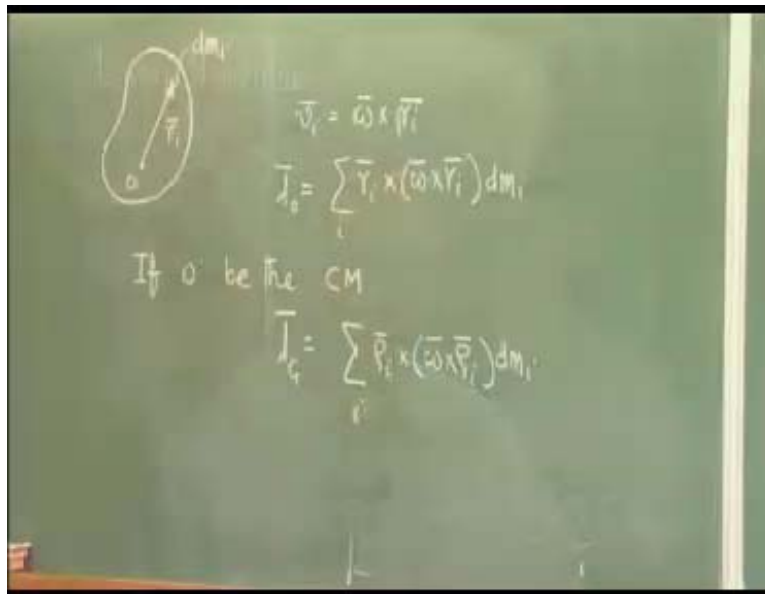 dm₁
r̄ᵢ
O
v̄ᵢ = ω̄ × r̄ᵢ
l̄₀ = ∑ᵢ r̄ᵢ × (ω̄ × r̄ᵢ) dmᵢ
If O be the CM
l̄_G = ∑ᵢ ρ̄ᵢ × (ω̄ × ρ̄ᵢ) dmᵢ